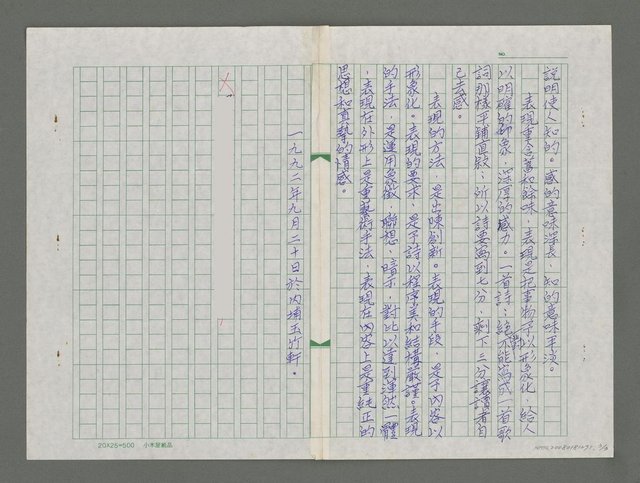 NO.
說明使人知的。感的意味深長，知的意味平淡。
表現重含蓄和餘味，表現是把事物予以形象化，給人
以明確的印象，深厚的感力。一首詩，絕不能寫成一首歌
詞那樣平鋪直敍，所以詩要寫到七分，剩下三分讓讀者自
己去感。
表現的方法，是出陳創新。表現的手段，是予內容以
形象化。表現的要求，是予詩以程序美和結構嚴謹。表現
的手法，是運用象徵，聯想，暗示，對比以達到渾然一體
，表現在外形上是重藝術手法，表現在內容上是重純正的
思想和真摯的情感。
一九九二年九月二十日於內埔玉竹軒。
20X25=500 小木屋紙品